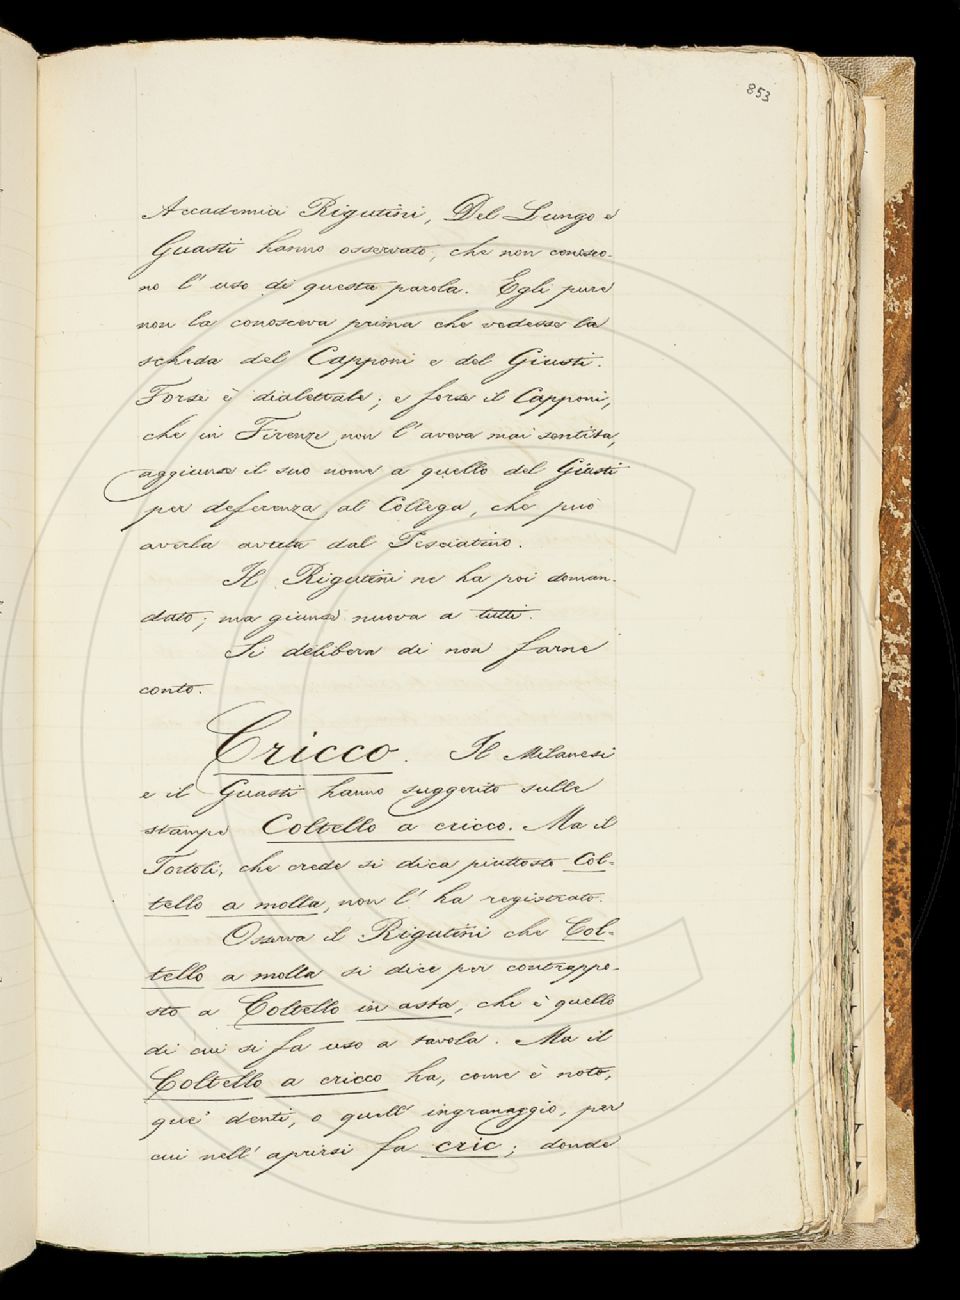 853
Accademici Rigutini, Del Lungo e
Guasti hanno osservato, che non conosco-
no l' uso di questa parola. Egli pure
non la conosceva prima che vedesse la
scheda del Capponi e del Giusti.
Forse è dialettale; e forse il Capponi,
che in Firenze non l' aveva mai sentita,
aggiunse il suo nome a quello del Giusti
per deferenza al Collega, che può
averla avuta dal Pesciatino.
Il Rigutini ne ha poi doman-
dato; ma giunse nuova a tutti.
Si delibera di non farne
conto.
Cricco. Il Milanesi
e il Guasti hanno suggerito sulle
stampe Coltello a cricco. Ma il
Tortoli, che crede si dica piuttosto Col-
tello a molla, non l' ha registrato.
Osserva il Rigutini che Col-
tello a molla si dice per contrappo-
sto a Coltello in asta, che è quello
di cui si fa uso a tavola. Ma il
Coltello a cricco ha, come è noto,
que' denti, o quell' ingranaggio, per
cui nell' aprirsi fa cric; donde